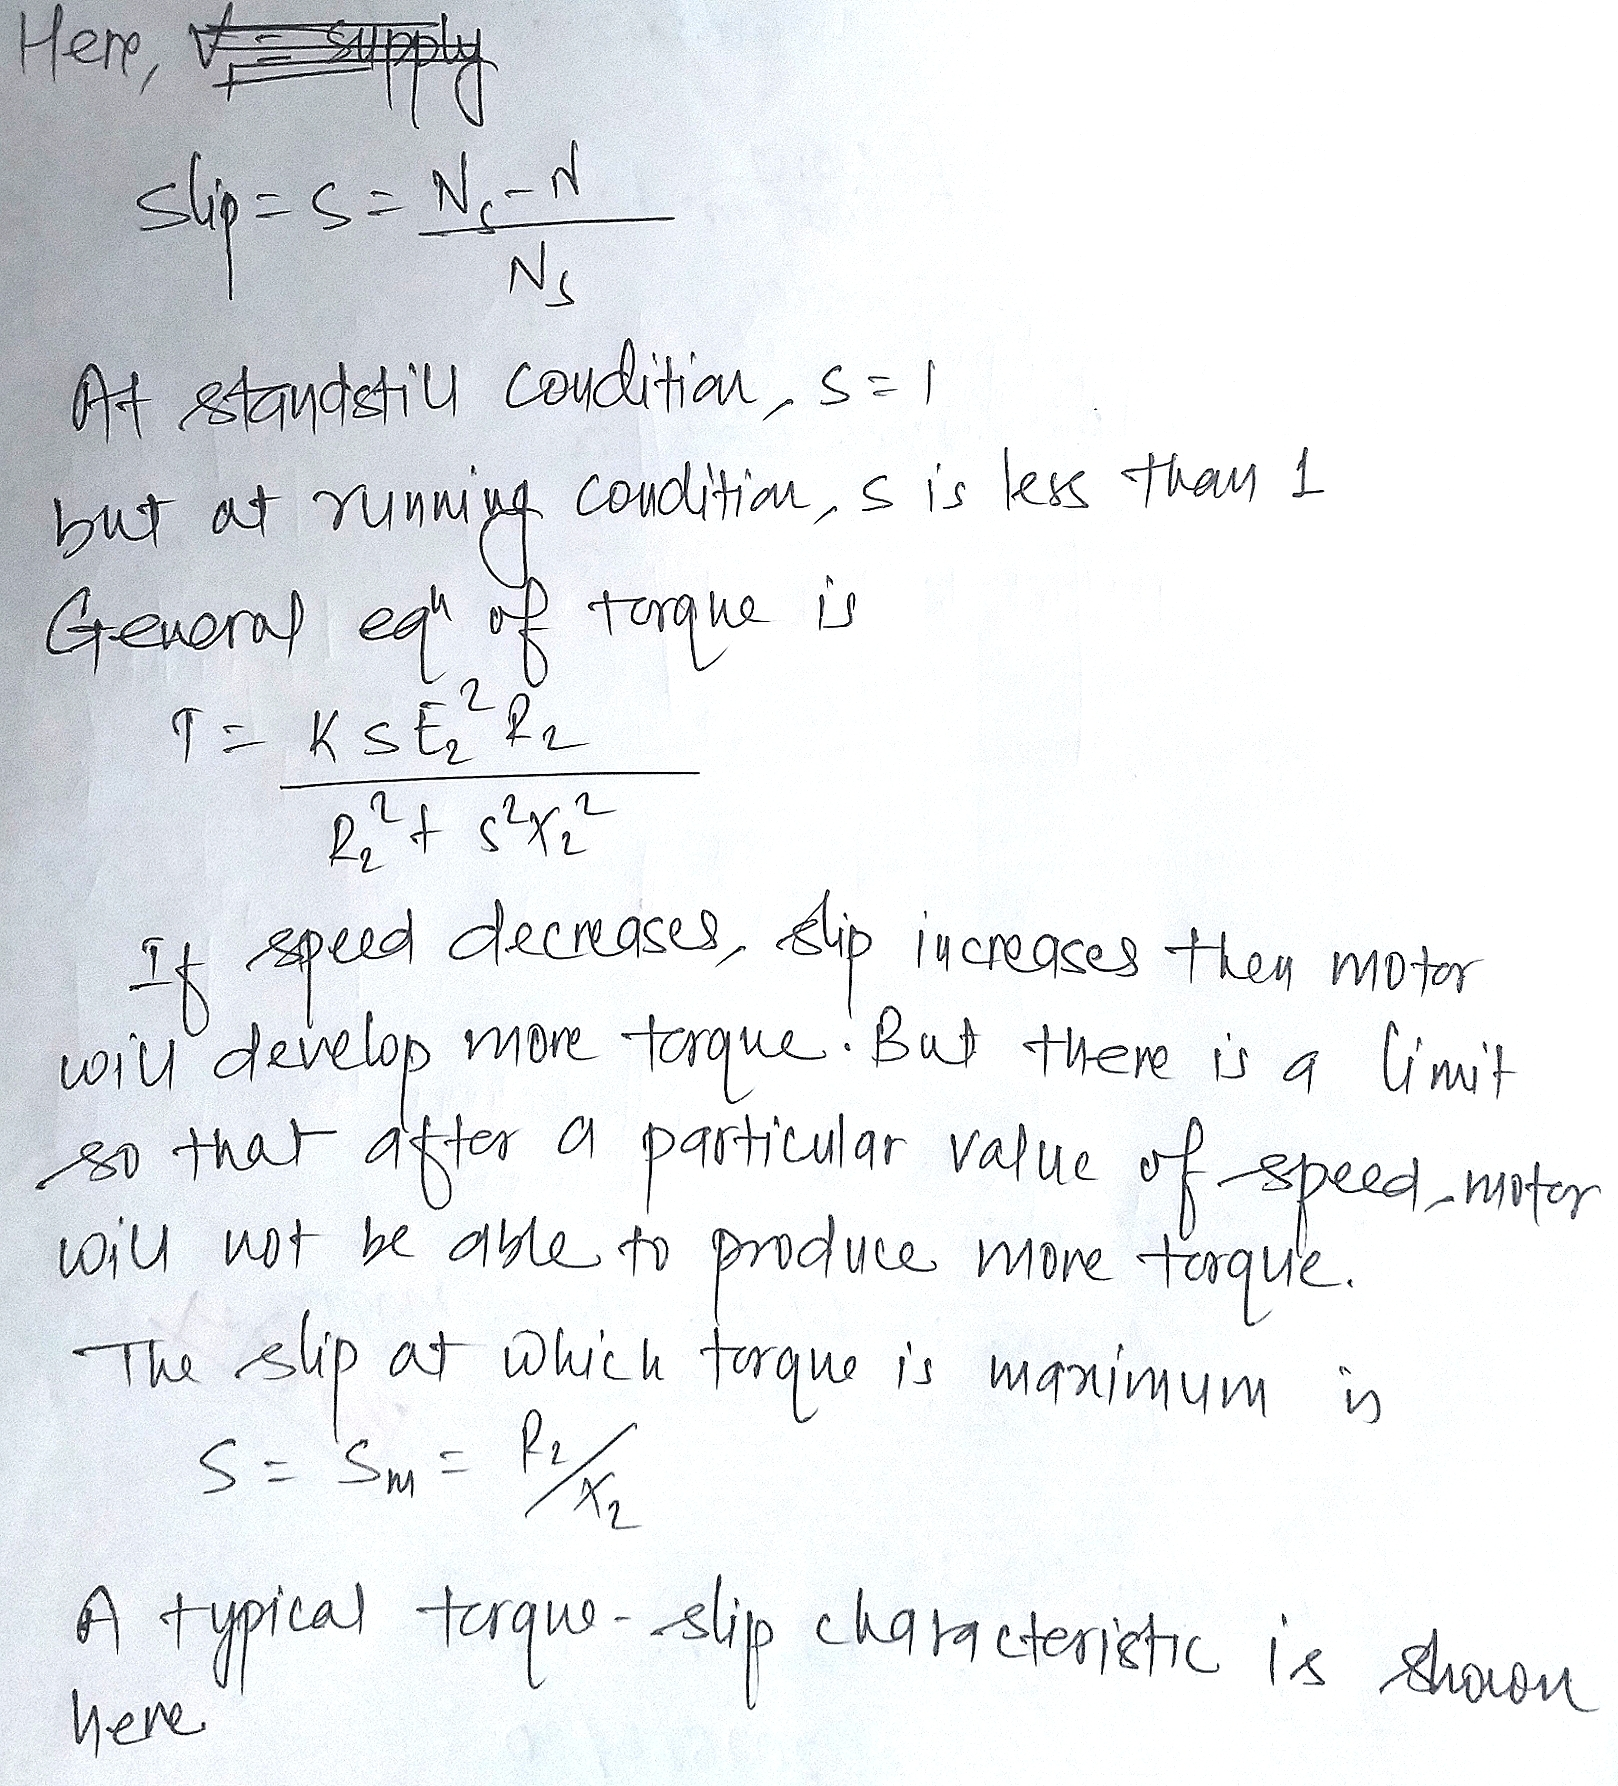 Here, V = supply
Slip = S = Ns - N
Ns
At standstill condition, S = 1
but at running condition, S is less than 1
General eqn of torque is
T = K S E₂² R₂
R₂² + S²X₂²
If speed decreases, slip increases then motor
will develop more torque. But there is a limit
so that after a particular value of speed, motor
will not be able to produce more torque.
The slip at which torque is maximum is
S = Sm = R₂/X₂
A typical torque-slip characteristic is shown
here